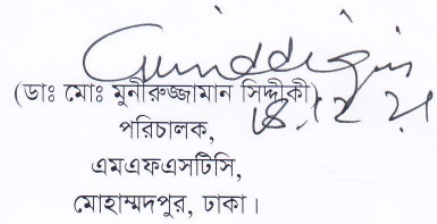 (ডাঃ মোঃ মুনীরুজ্জামান সিদ্দীকী)
পরিচালক,
এমএফএসটিসি,
মোহাম্মদপুর, ঢাকা।